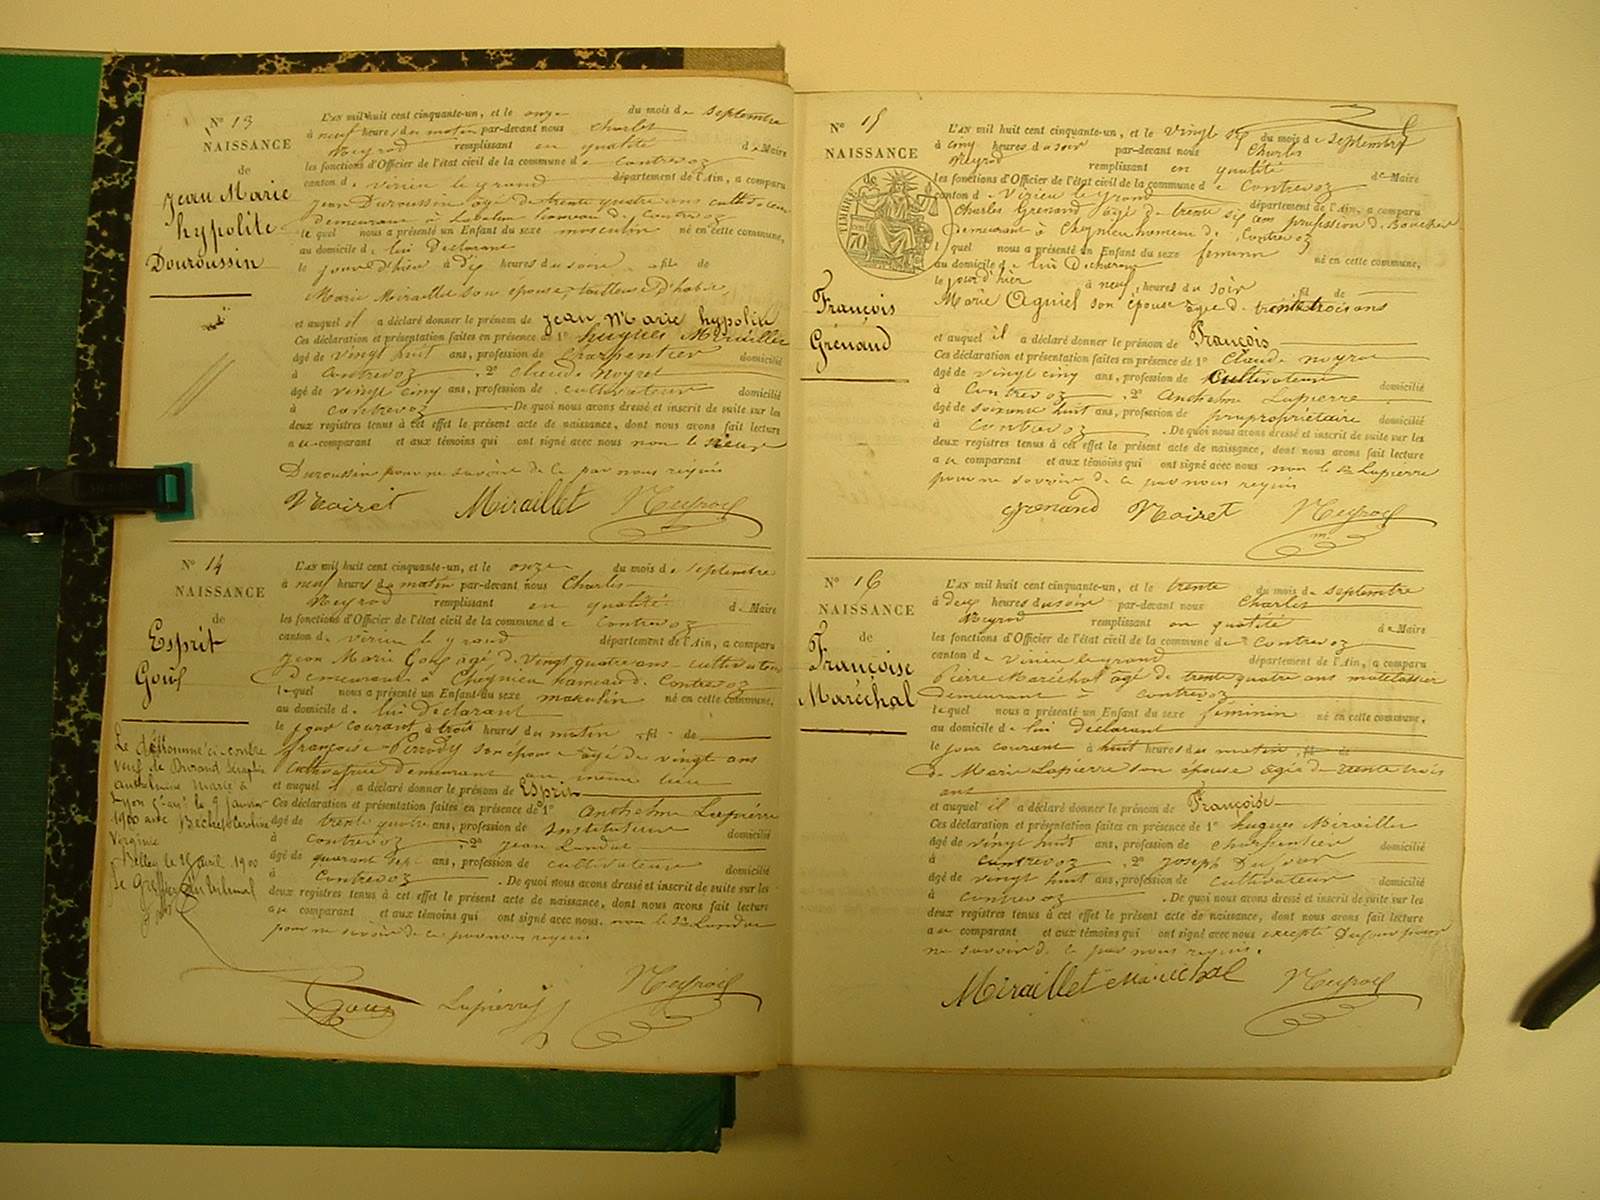 N° 13
NAISSANCE
de
Jean Marie
hypolite
Douroussin
L'AN mil huit cent cinquante-un, et le onze du mois de Septembre
à neuf heures du matin par-devant nous Charles
Neyrod remplissant en qualité de Maire
les fonctions d'Officier de l'état civil de la commune de Contrevoz
canton de Virieu le grand département de l'Ain, a comparu
Jean Duroussin âgé de trente quatre ans cultivateur
demeurant à hameau de Contrevoz
lequel nous a présenté un Enfant du sexe masculin né en cette commune,
au domicile de lui Déclarant
le jour d'hier à dix heures du soir fils de
Marie Miraillet son épouse, tailleuse d'habits,
et auquel il a déclaré donner le prénom de Jean Marie hypolite
Ces déclaration et présentation faites en présence de 1° hugues Miraillet
âgé de vingt huit ans, profession de charpentier domicilié
à Contrevoz , 2° Claude Noyret
âgé de vingt cinq ans, profession de cultivateur domicilié
à Contrevoz . De quoi nous avons dressé et inscrit de suite sur les
deux registres tenus à cet effet le présent acte de naissance, dont nous avons fait lecture
au comparant et aux témoins qui ont signé avec nous non le sieur
Duroussin pour ne savoir de ce par nous requis
Noiret Miraillet Neyrod
N° 14
NAISSANCE
de
Esprit
Goux
L'AN mil huit cent cinquante-un, et le onze du mois de Septembre
à neuf heures du matin par-devant nous Charles
Neyrod remplissant en qualité de Maire
les fonctions d'Officier de l'état civil de la commune de Contrevoz
canton de Virieu le grand département de l'Ain, a comparu
Jean Marie Goux âgé de vingt quatre ans cultivateur
demeurant à Cheignieu hameau de Contrevoz
lequel nous a présenté un Enfant du sexe masculin né en cette commune,
au domicile de lui Déclarant
le jour courant à trois heures du matin fils de
françoise son épouse âgée de vingt ans
cultivatrice demeurant au même lieu
et auquel il a déclaré donner le prénom de Esprit
Ces déclaration et présentation faites en présence de 1° Anthelme Lapierre
âgé de trente quatre ans, profession de instituteur domicilié
à Contrevoz , 2° Jean
âgé de quarante sept ans, profession de cultivateur domicilié
à Contrevoz . De quoi nous avons dressé et inscrit de suite sur les
deux registres tenus à cet effet le présent acte de naissance, dont nous avons fait lecture
au comparant et aux témoins qui ont signé avec nous non le Sr
pour ne savoir de ce par nous requis
Le dénommé ci-contre
veuf de Durand Séraphie
Anthelmine Marie à
Lyon le 9 janvier
1900 avec Caroline
Virginie
Belley le avril 1900
Le Greffier du tribunal
Goux Lapierre Neyrod
N° 15
NAISSANCE
de
TIMBRE
70
François
Grénaud
L'AN mil huit cent cinquante-un, et le vingt six du mois de Septembre
à cinq heures du soir par-devant nous Charles
Neyrod remplissant en qualité de Maire
les fonctions d'Officier de l'état civil de la commune de Contrevoz
canton de Virieu le grand département de l'Ain, a comparu
Charles Grenand âgé de trente six ans profession de Boucher
demeurant à Cheignieu hameau de Contrevoz
lequel nous a présenté un Enfant du sexe feminin né en cette commune,
au domicile de lui Déclarant
le jour d'hier à neuf heures du soir fil de
Marie Agniel son épouse âgée de trente trois ans
et auquel il a déclaré donner le prénom de François
Ces déclaration et présentation faites en présence de 1° Claude noyret
âgé de vingt cinq ans, profession de Cultivateur domicilié
à Contrevoz , 2° Anthelme Lapierre
âgé de soixante huit ans, profession de propriétaire domicilié
à Contrevoz . De quoi nous avons dressé et inscrit de suite sur les
deux registres tenus à cet effet le présent acte de naissance, dont nous avons fait lecture
au comparant et aux témoins qui ont signé avec nous non le Sr Lapierre
pour ne savoir de ce par nous requis
grenand Noiret Neyrod
N° 16
NAISSANCE
de
Françoise
Maréchal
L'AN mil huit cent cinquante-un, et le trente du mois de Septembre
à deux heures du soir par-devant nous Charles
Neyrod remplissant en qualité de Maire
les fonctions d'Officier de l'état civil de la commune de Contrevoz
canton de Virieu le grand département de l'Ain, a comparu
Pierre Maréchal âgé de trente quatre ans matelassier
demeurant à Contrevoz
lequel nous a présenté un Enfant du sexe féminin né en cette commune,
au domicile de lui déclarant
le jour courant à huit heures du matin, fil de
de Marie Lapierre son épouse âgée de trente trois
ans
et auquel il a déclaré donner le prénom de Françoise
Ces déclaration et présentation faites en présence de 1° hugues Miraillet
âgé de vingt huit ans, profession de charpentier domicilié
à Contrevoz , 2° Joseph Dufour
âgé de vingt huit ans, profession de cultivateur domicilié
à Contrevoz . De quoi nous avons dressé et inscrit de suite sur les
deux registres tenus à cet effet le présent acte de naissance, dont nous avons fait lecture
au comparant et aux témoins qui ont signé avec nous excepté Dufour pour
ne savoir de ce par nous requis.
Miraillet Maréchal Neyrod